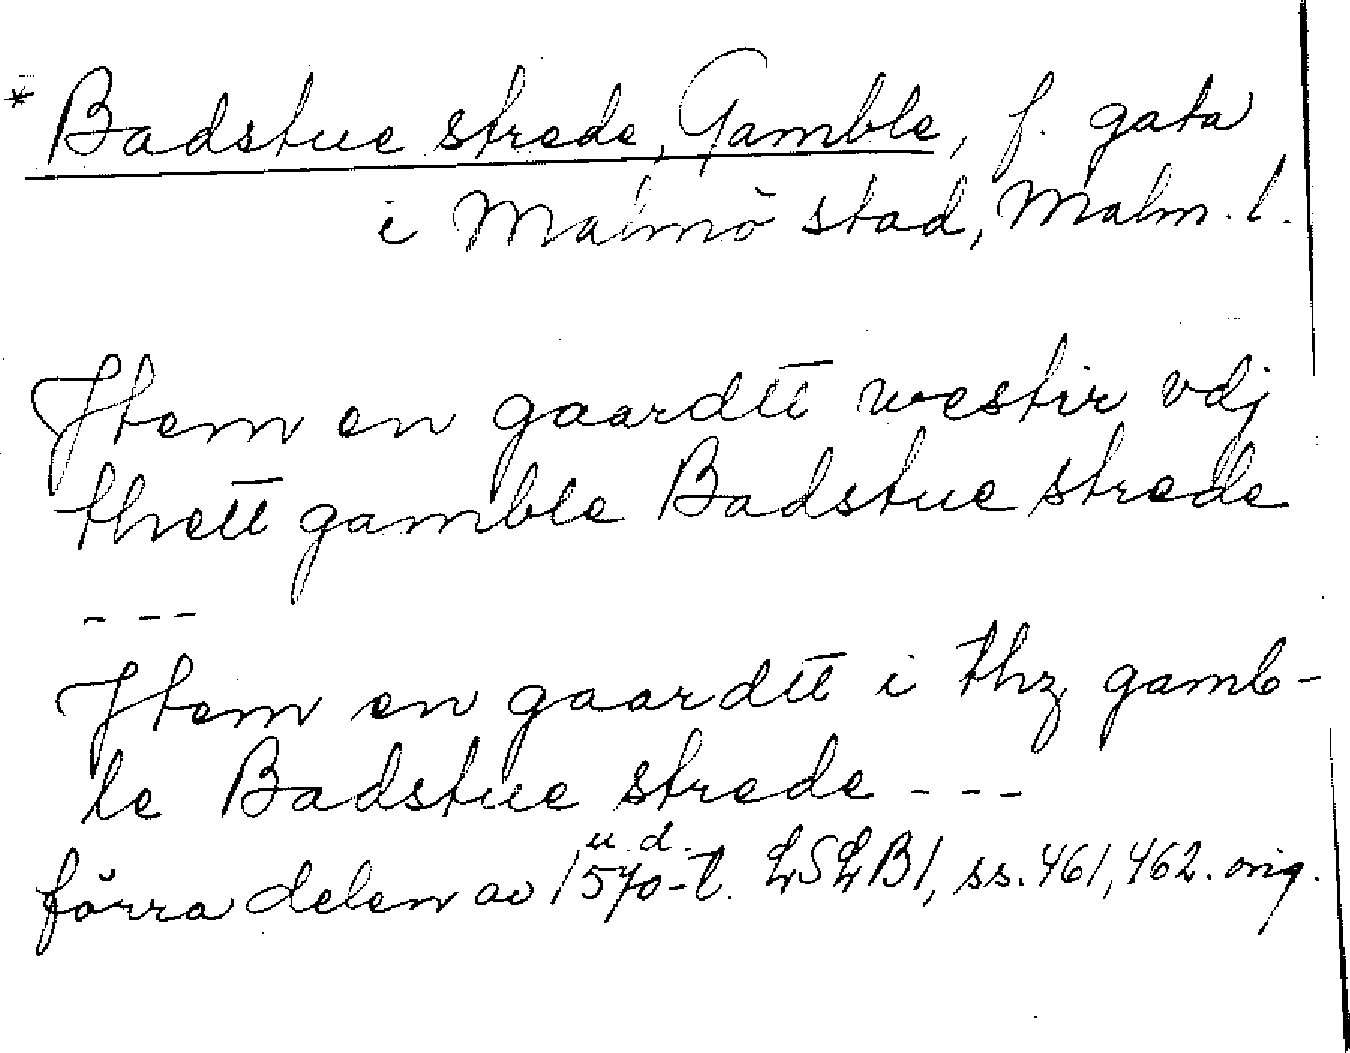 * Badstue strede, Gamble, f. gata
i Malmö stad, Malm. l.
Jtem en gaardtt westir vdj
thett gamble Badstue strede
- - -
Jtem en gaardtt i thz gamb-
le Badstue strede - - -
u. d.
förra delen av 1570-t. LSLB1, ss. 461, 462. orig.